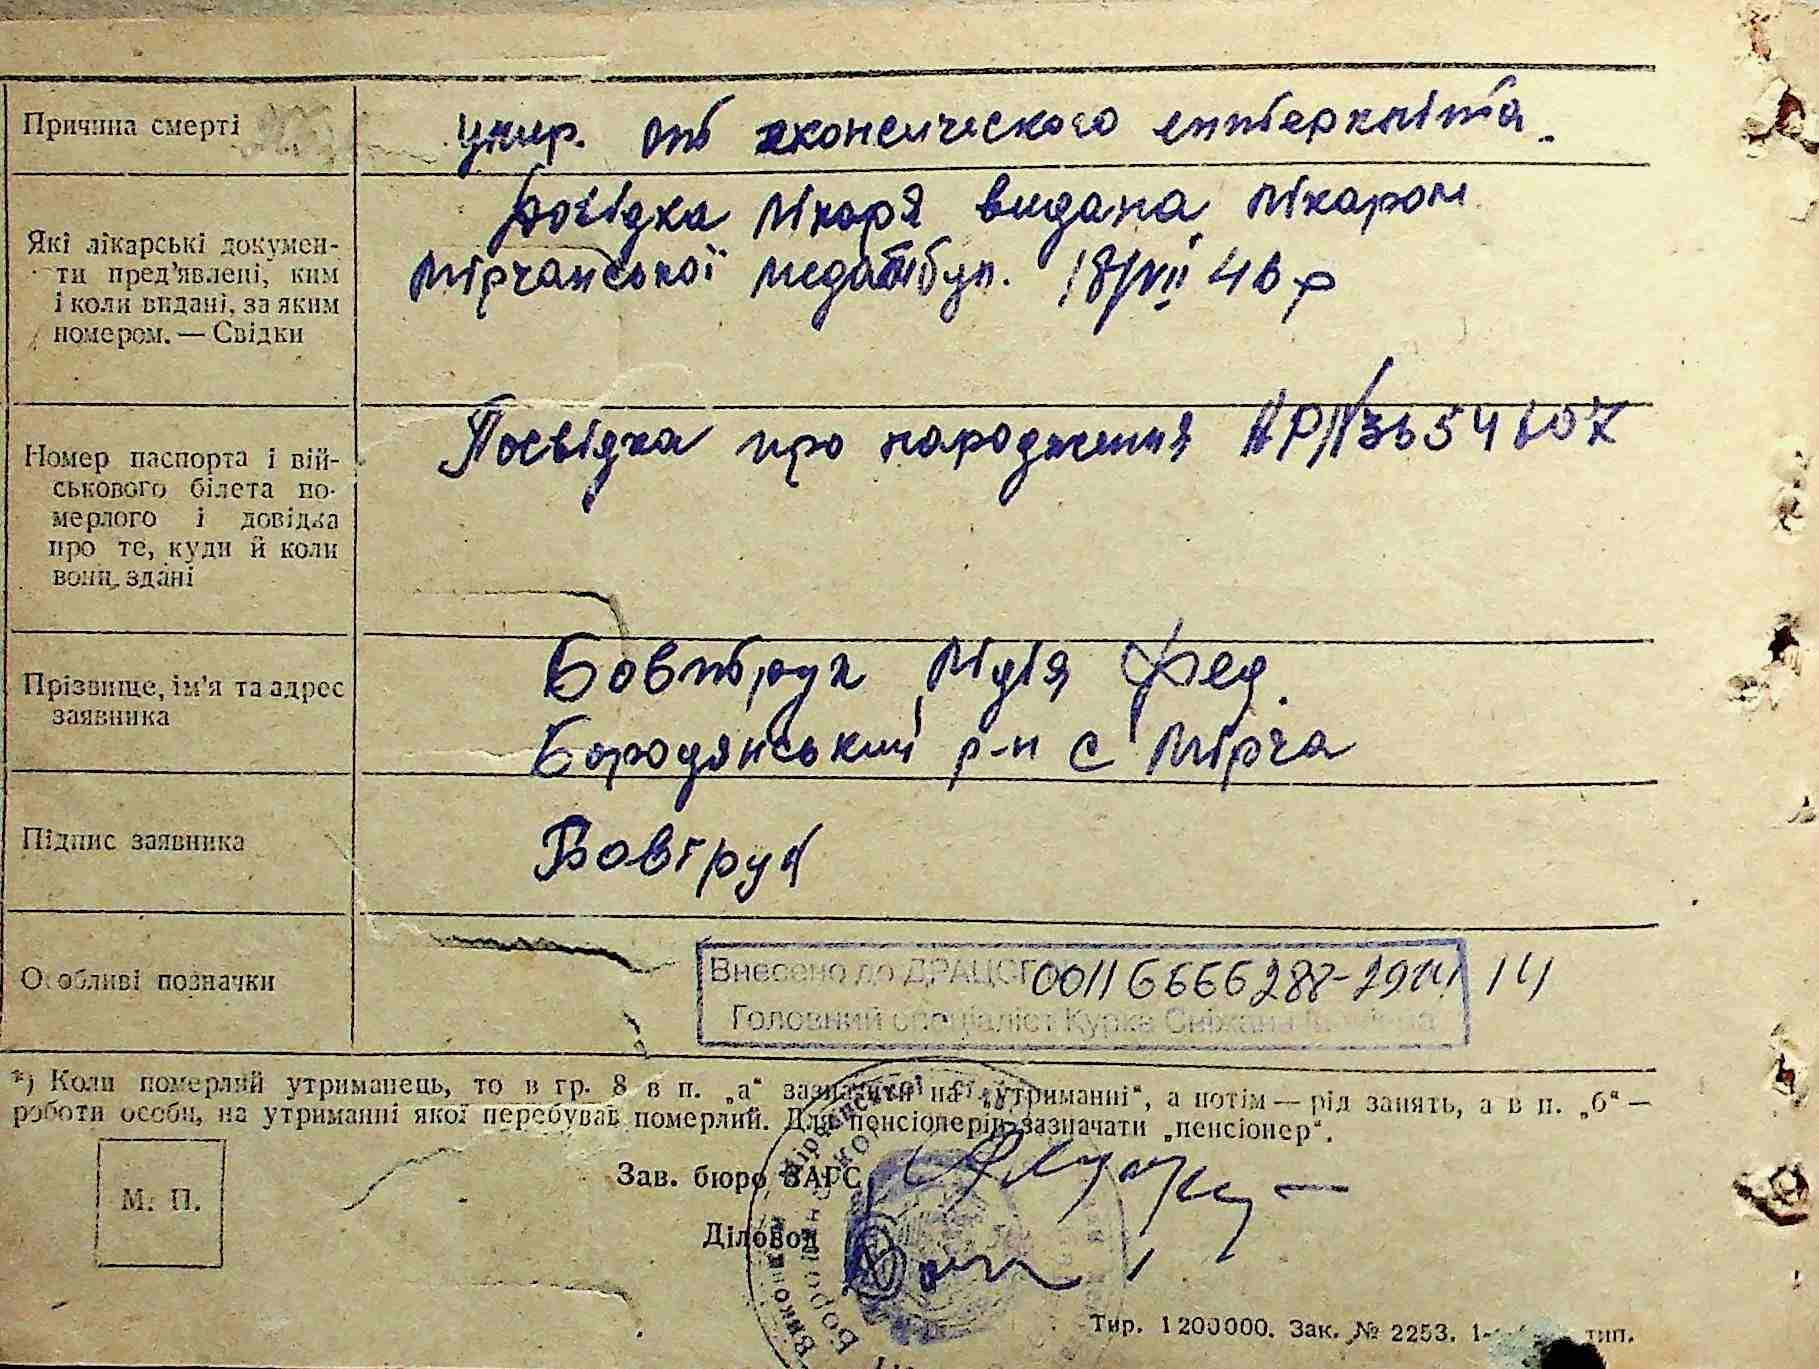 Причина смерті
умер. от
Які лікарські докумен-
ти пред'явлені, ким
і коли видані, за яким
номером. — Свідки
Довідка лікаря видана лікаром
Мірчанської медамбул. 18/VII 46 р
Номер паспорта і вій-
ськового білета по-
мерлого і довідка
про те, куди й коли
вони здані
Посвідка про народження
Прізвище, ім'я та адрес
заявника
Бовтрук Лідія Фед.
Бородянський р-н с Мірча
Підпис заявника
Бовтрук
Особливі позначки
Внесено до ДРАЦСГ 00116666288-2914 14
Головний спеціаліст Курка Сніжана
*) Коли померлий утриманець, то в гр. 8 в п. „а“ зазначити на „утриманні“, а потім — рід занять, а в п. „б“ —
роботи особи, на утриманні якої перебував померлий. Для пенсіонерів зазначати „пенсіонер“.
М. П.
Зав. бюро ЗАГС
Діловод
Тир. 1200000. Зак. № 2253. тип.